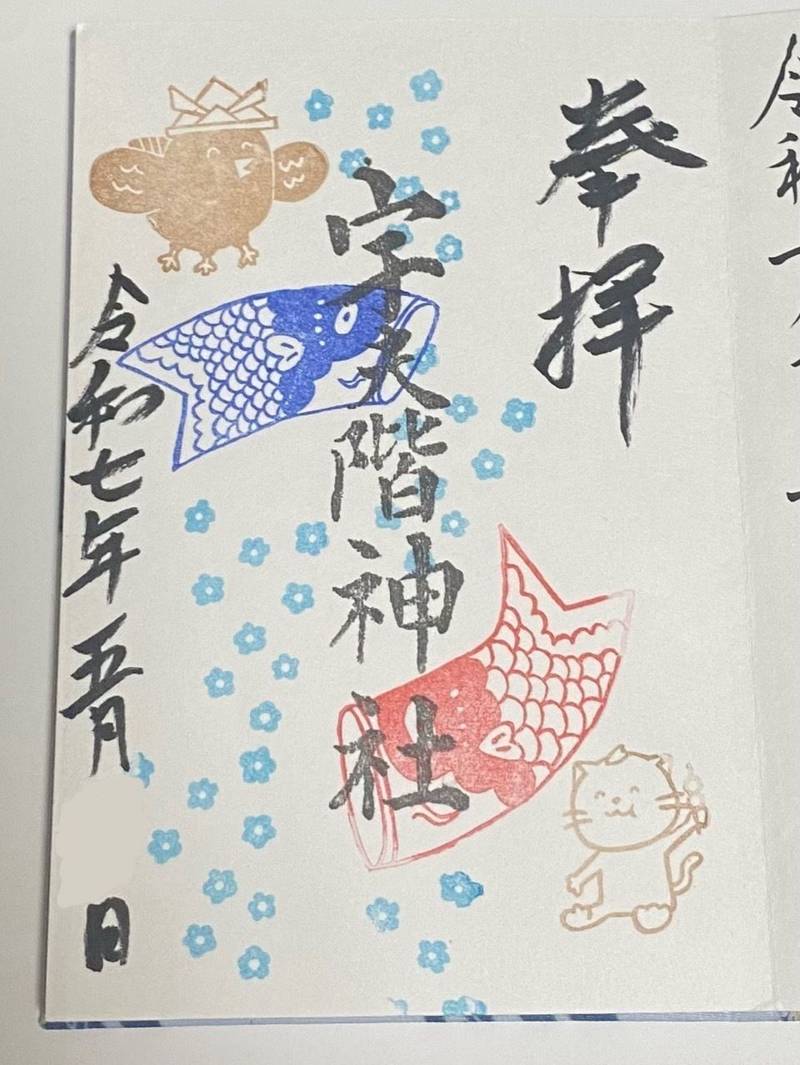 奉拝
宇夫階神社
令和七年五月
日